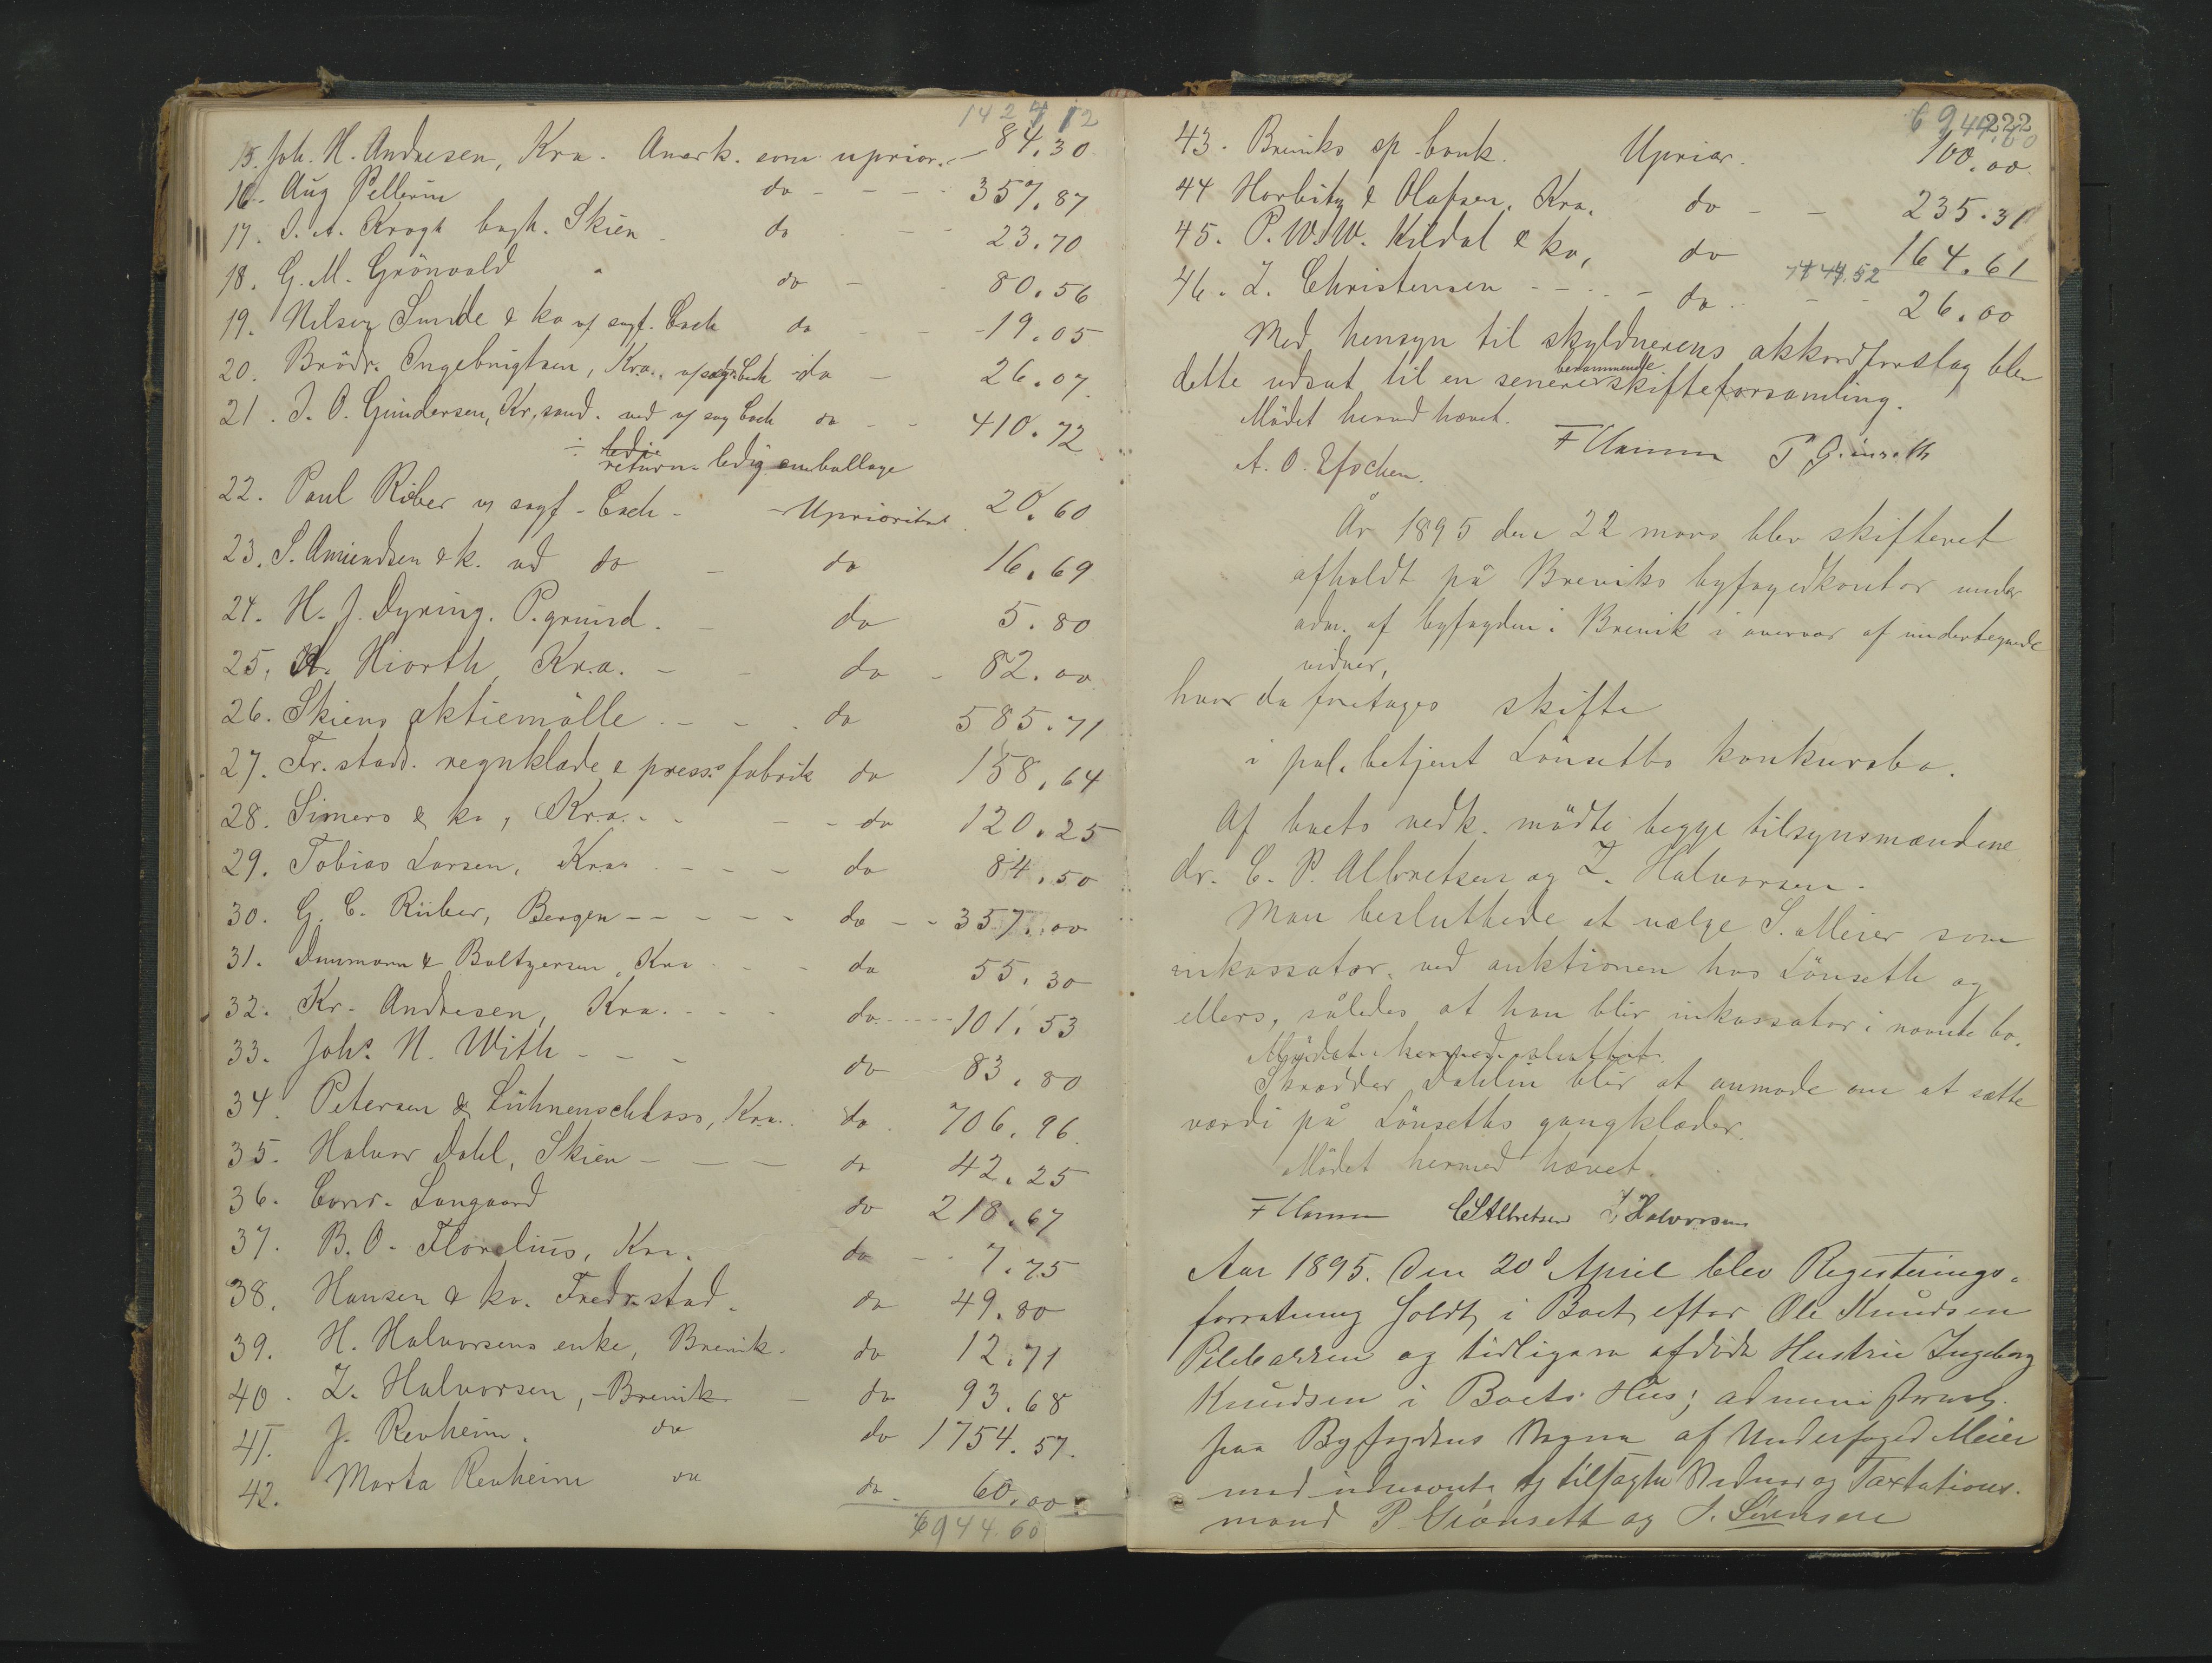 1427 12
15. Joh. H. Andresen, Kra. Anerk. som uprior. - 84.30
16. Aug Pellerin do - - - - 357.87
17. J. A. Krogh bagh. Skien do - - 23.70
18. G. M. Grönvold " do - - 80.56
19. Nilsen Sunde & ko v/ sagf. Cock do - - 19.05
20. Brödr. Ingebrigtsen, Kra. v/ sagf. Cock do - 26.07
21. J. O. Gundersen, Kr.sand. ved v/ sag Cock do - - 410.72
÷ return. ledig emballage
22. Paul Riber v/ sagf - Cock - - Uprioritet 20.60
23. S. Amundsen & k. ved do - do 16.69
24. H. J. Dyring. P.grund. - do 5.80
25. A. Hiorth, Kra. - - do - 82.00
26. Skiens aktiemölle - - . do 585.71
27. Fr.stad. regnklæde & press. fabrik do 158.64
28. Simers & ko, Kra. - - - do 120.25
29. Tobias Larsen, Kra. - - - do 84.50
30. G. C. Rieber, Bergen - - - - - do - - 357.00
31. Dunmann & Baltzersen, Kra - - do 55.30
32. Kr. Andresen, Kra. - - - do - - - - 101.53
33. Johs. N. With - - - do 83.80
34. Petersen & Lühnenschloss, Kra. do 706.96
35. Halvor Dahl, Skien - - - do 42.25
36. Conr. Langaard do 218.67
37. B. O. Florelius, Kra. do - - 7.75
38. Hansen & ko. Fredr.stad. do 49.80
39. H. Halvorsens enke, Brevik. do 12.71
40. Z. Halvorsen, - Brevik - do 93.68
41. J. Revheim. do do 1754.57
42. Marta Revheim do do - 60.00
6944.60
222
6944.60
43. Breviks sp.bank. Uprior. 100.00
44 Horbitz & Olafsen, Kra. do - - 235.31
45. P. W. W. Kildal & ko, do 164.61
7444.52
46. Z. Christensen - - - - do - - - 26.00
Med hensyn til skyldnerens akkordforslag blev
dette udsat til en senere berammende skifteforsamling.
Mödet herved hævet.
F Hamm P Grinseth
A. O.
År 1895 den 22 mars blev skifteret
afholdt på Breviks byfogedkontor under
adm. af byfogden i Brevik i overvær af undertegnede
vidner,
hvor da foretages skifte
i pol. betjent Lönseths konkursbo.
Af boets vedk. mödte begge tilsynsmændene
dr. C. P. Albretsen og Z. Halvorsen.
Man besluttede at vælge S. Meier som
inkassator ved auktionen hos Lönseth og
ellers, således at han blir inkassator i nævnte bo.
Mödet hermed sluttet.
Skrædder Dahlin blir at anmode om at sætte
værdi på Lönseths gangklæder.
Mödet hermed hævet.
F Hamm CPAlbretsen Z, Halvorsen
Aar 1895. Den 20d April blev Registerings-
forretning holdt i Boet efter Ole Knudsen
og tidligere afdöde Hustru Ingeborg
Knudsen i Boets Hus; administreret
paa Byfogdens Vegne af Underfoged Meier
med nærværende og tilsagte Vidner og Taxtations-
mænd P. Grönseth og J. Sörensen